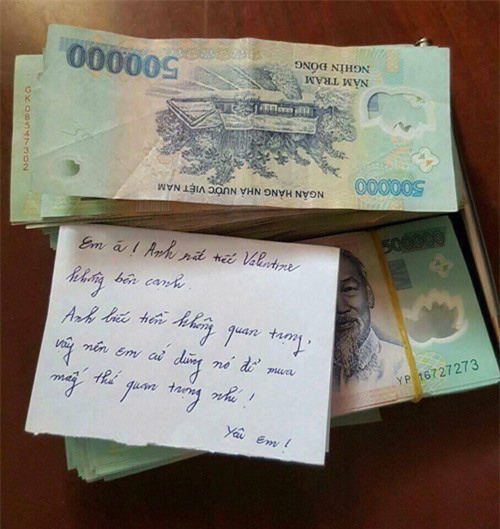 500000
NĂM TRĂM
NGHÌN ĐỒNG
NGÂN HÀNG NHÀ NƯỚC VIỆT NAM
500000
GK 08547302
Em à! Anh rất tiếc Valentine
không bên cạnh.
Anh biết tiền không quan trọng,
vậy nên em cứ dùng nó để mua
mấy thứ quan trọng nhé!
Yêu em!
500000
YP 16727273